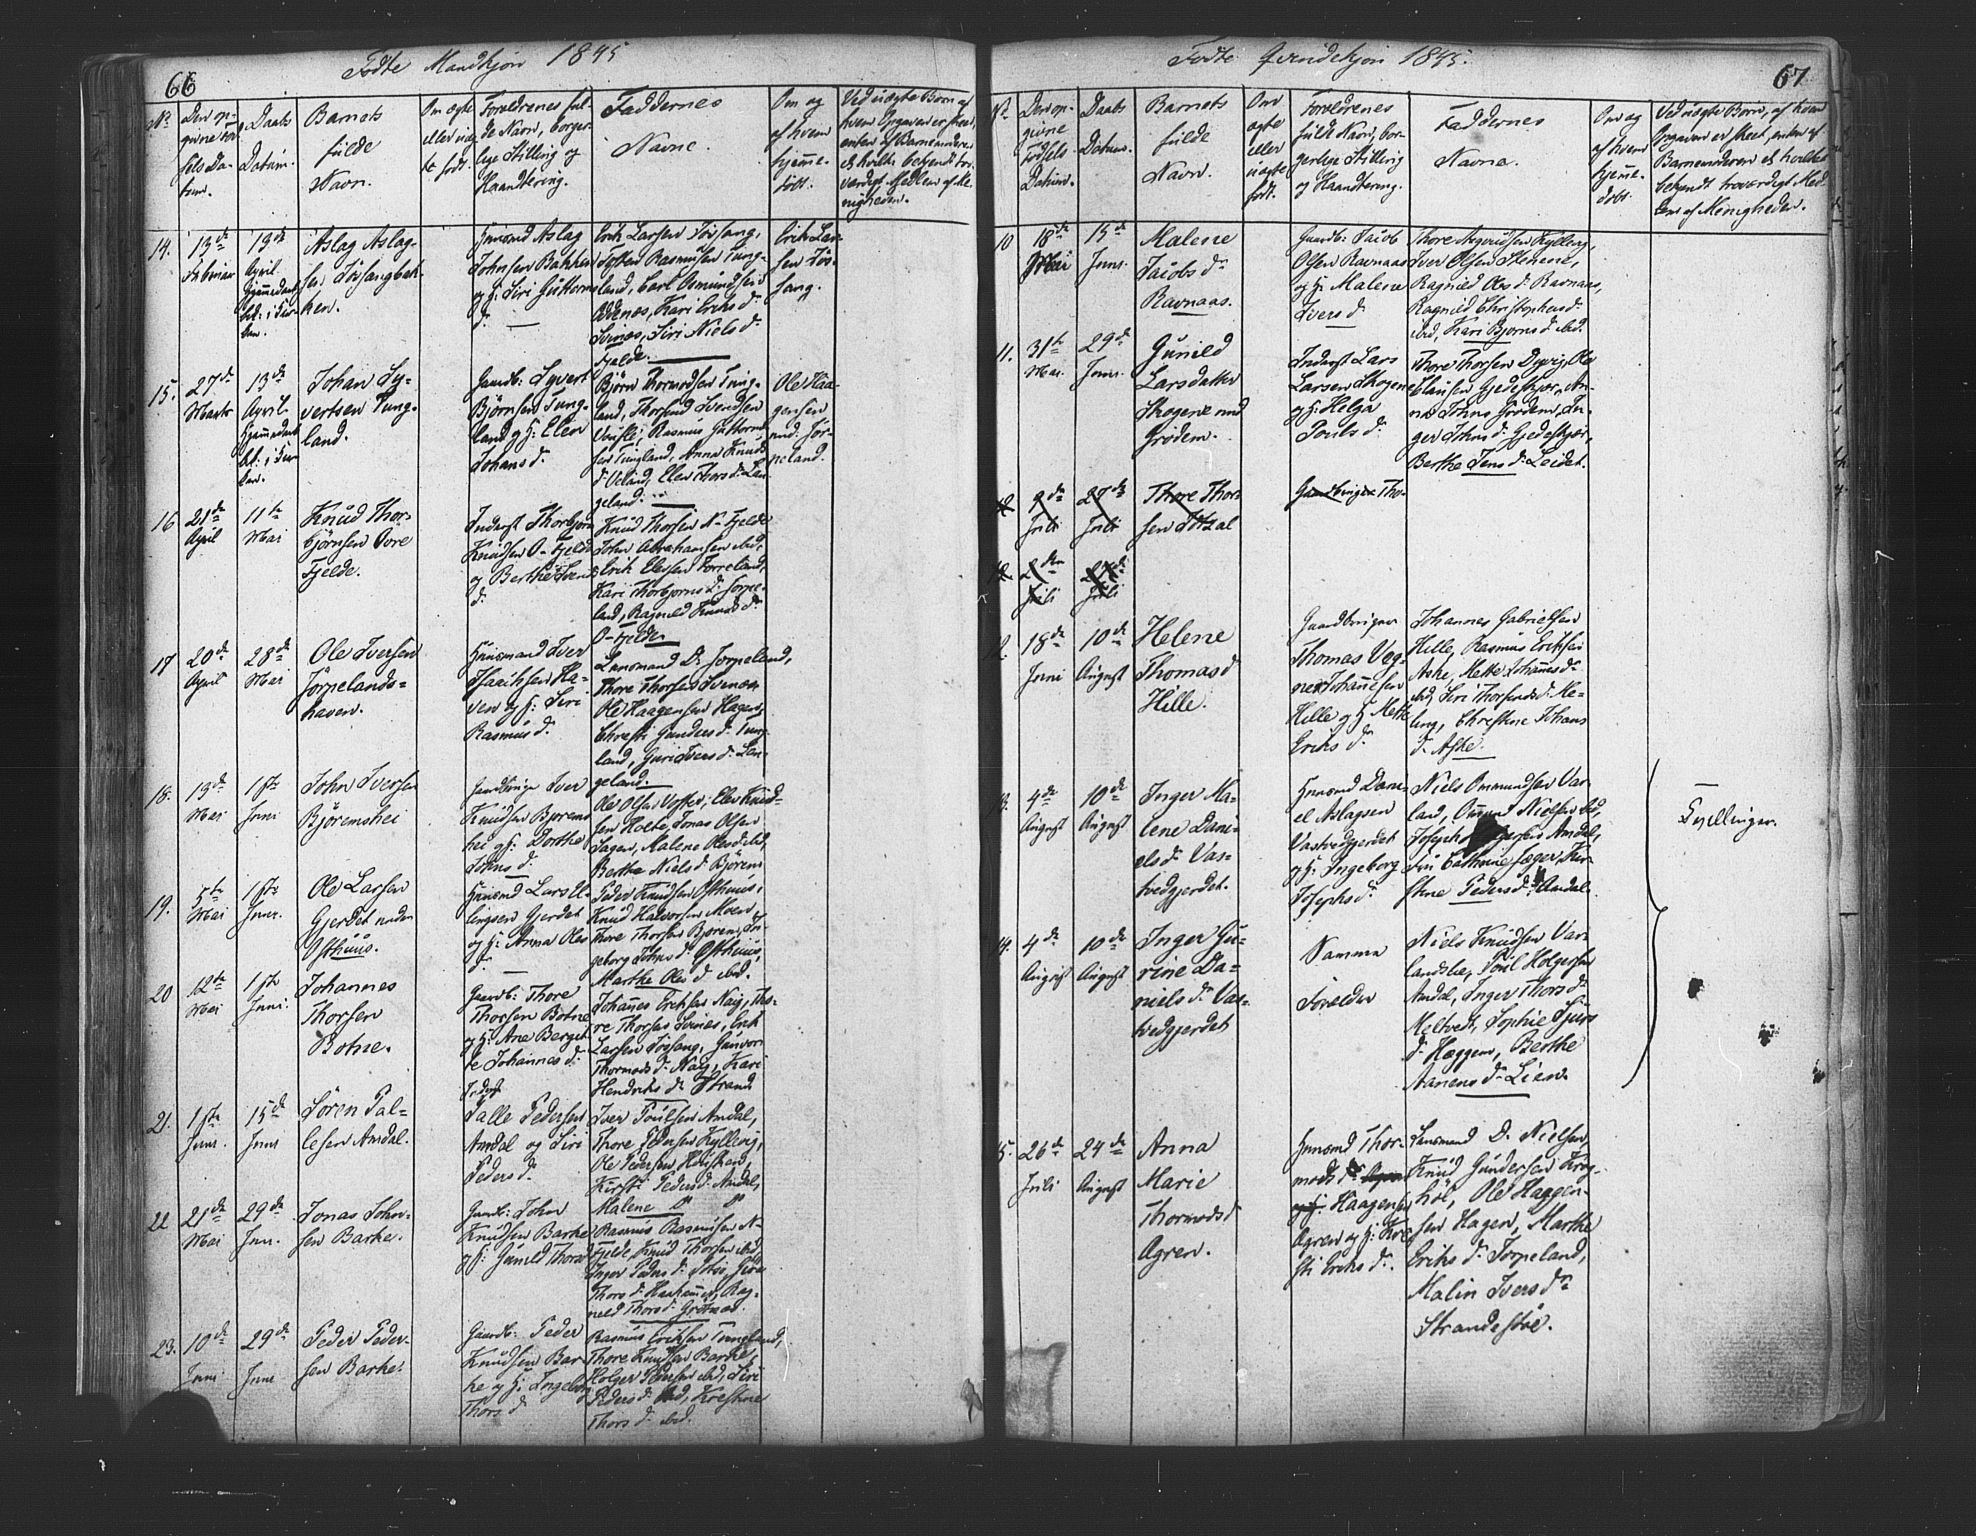 66
Fødte Mandkjøn 1845
No.
Den op-
givne Fød-
sels Da-
tum.
Daabs
Datum.
Barnets
fulde
Navn.
Om ægte
eller uæg-
te født.
Forældrenes ful-
de Navn, borger-
lige Stilling og
Haandtering.
Faddernes
Navne.
Om og
af hvem
hjemme-
døbt.
Ved uægte Børn af
hvem Opgaven er skeet,
enten af Barnemoderen
el. hvilket bekjendt tro-
værdigt Medlem af Me-
nigheden.
14.
13de
Februar
13de
April
Hjemmedaab
bek. i Kir-
ken.
Aslag Aslag-
sen Tøssangbak-
ken.
Huusmd Aslag
Johnsen Bakken
og H: Siri Guttorms
d.
Erik Larsen Tøssang,
Rasmusen Tung-
land, Carl Osmundsen
Kari Eriks d.
Svines, Siri Niels d.
Fjelde.
Erik Lar-
sen Tøs-
sang.
15.
27de
Marts
13de
April.
Hjemmedaab
bek. i Kir-
ken.
Johan Sy-
vertsen Tung-
land.
Gaardb: Syvert
Bjørnsen Tung-
land og H: Elen
Johans d.
Bjørn Thormodsen Tung-
land, Thorsend Svendsen
Rasmus Guttorm-
sen Tungland, Anna Knuds
d. Veland, Elen Thors d. Lan-
geland.
Ole Haa-
gensen
und. Jør-
peland.
16
21de
April
11te
Mai
Knud Thor-
bjørnsen Øvre
Fjelde.
Inderst Thorbjørn
Knudsen Ø-Fjelde
og Berthe Svends
d.
Knud Thorsen N-Fjelde
John Abrahamsen ibid,
Erik Elevsen Torreland,
Kari Thorbjørns d. Jørpe-
land, Ragnild Knuds d.
Ø-Fjelde.
17
20de
April
28de
Mai
Ole Iversen
Jørpelands-
haven.
Huusmand Iver
Isaachsen Ha-
ven og H: Siri
Rasmus d.
Lensmand D. Jørpeland,
Thore Thorsen Svines,
Ole Haagensen Hagen,
Christi Gunders d. Tung-
land, Guri Ivers d. Lan-
geland.
18.
13de
Mai
1ste
Juni
John Iversen
Bjøremshei
Gaardbruger Iver
Knudsen Bjørems-
hei og H: Dorthe
Johns d.
Ole Olsen Voster, Elev Knud-
sen Holte, Jonas Olsen
Malene Oles d. ibid,
Berthe Niels d. Bjørem
19.
5te
Mai
1ste
Juni.
Ole Larsen
Gjerdet under
Østhuus.
Huusmd Lars El-
lingsen Gjerdet
og H: Anna Oles
d.
Peder Knudsen Østhuus,
Knud Halvorsen Moen,
Thore Thorsen Bjørem, In-
geborg Johns d. Østhuus,
Marthe Oles d. ibid.
20
12te
Mai
1ste
Juni.
Johannes
Thorsen
Botne.
Gaardb: Thore
Thorsen Botne
og H: Ane Berget-
te Johannes d.
Johanes Eriksen Nag, Tho-
re Thorsen Svines, Erik
Larsen Tøssang, Gunvor
Thormods d. Nag, Kari
Hendriks d. Strand
21.
1ste
Juni.
15de
Juni
Søren Pal-
lesen Amdal.
Inderst
Palle Pedersen
Amdal og Siri
Peders d.
Iver Poulsen Amdal,
Thore Pedersen Kylleng,
Ole Pedersen
Kirsti Peders d. Amdal,
Malene
22
21de
Mai
29de
Jun.
Jonas John-
sen Barke.
Gaardb: John
Knudsen Barke
og H: Gunild Thors d.
Rasmus Rasmusen N-
Fjelde Knud Thorsen ibid
Inger Peders d.
Thors d. Rag-
nild Thors d.
23.
10de
Juni
29de
Juni
Peder Peder-
sen Barke.
Gaardb: Peder
Knudsen Bar-
ke og H: Ingeborg
Thors d.
Rasmus Eriksen Tungland,
Thore Knudsen Barke,
Holger Pedersen ibid, Siri
Peders d. ibid, Krestine
Thors d. ibid.
Fødte Qvindekjøn 1845.
67
No.
Den op-
givne
Fødsels
Datum.
Daabs
Datum.
Barnets
fulde
Navn.
Om
ægte
eller
uægte
født.
Forældrenes
fulde Navn, bor-
gerlige Stilling
og Haandtering.
Faddernes
Navne.
Om og
af hvem
hjemme-
døbt.
Ved uægte Børn, af hvem
Opgaven er skeet, enten af
Barnemoderen el. hvilket
bekjendt troværdigt Med-
lem af Menigheden.
10
18de
Mai
15de
Juni.
Malene
Jacobs d.
Ravnaas.
Gaardb: Jacob
Olsen Ravnaas
og H: Malene
Ivers d.
Thore Asgaudsen Kylleng,
Iver Olsen
Ragnild Oles d. Ravnaas,
Ragnild Christophers d.
ibid, Kari Bjørns d. ibid.
11.
31te
Mai.
29de
Juni.
Gunild
Larsdatter
Skogene und
Grødem.
Inderst Lars
Larsen Skogene
og H: Helga
Pouls d.
Thore Thorsen Dyvig, Ole
Clausen Gjedeskjær, An-
na Johns Grødem, In-
ger Johns d. Gjedeskjær,
Berthe Jens d. Leidet.
12
9de
Juli
27de
Juli
Thore Thor-
sen
Gaardbruger Tho-
12
2den
Juli
27de
Juli
12.
18de
Juni
10de
August
Helene
Thomas d
Hille.
Gaardbruger
Thomas Veg-
ner Johanesen
Hille og H Mette
Eriks d.
Johannes Gabrielsen
Hille, Rasmus Eriksen
Aske, Mette Johanes d.
ibid, Siri Thorsends d. Me-
ling, Christine Johans
d. Aske.
13.
4de
August
10de
August
Inger Ma-
lene Dani-
els d. Vas-
tvedgjerdet.
Huusmd Dani-
el Aslagsen
Vastvedgjerdet
og H: Ingeborg
Josephs d.
Niels Ommundsen Var-
land, Nielsen ibid,
Joseph Amdal,
Cathrine Jæger, Kir-
stine Peders d. Amdal.
14.
4de
August
10de
August
Inger Gu-
rine Da-
niels d. Vas-
tvedgjerdet
Samme
Forældre
Niels Knudsen Var-
landsbø, Poul Holgersen
Amdal, Inger Thors d.
Meltvedt, Sophie Sjurs
d. Heggem, Berthe
Aanens d. Lien.
Tvillinger.
15.
26de
Juli
24de
August
Anna
Marie
Thormods d
Agren.
Huusmd Thor-
mod
og H: Haagensen
Agren og H: Kre-
sti Eriks d.
Lensmand D. Nielsen,
Knud Gundersen Krog-
høl, Ole Haagen-
sen Hagen, Marthe
Eriks d. Jørpeland,
Malin Ivers d.
Strandestøe.